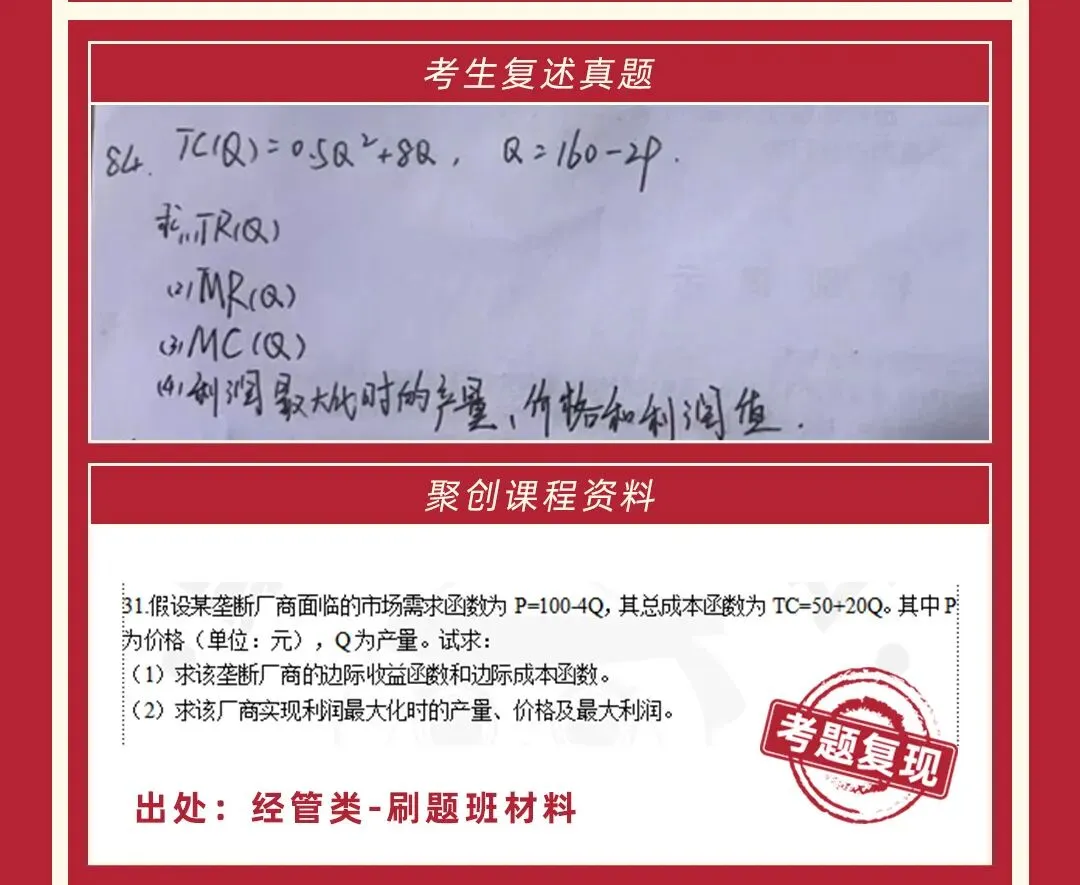 考生复述真题
84. TC(Q)=0.5Q²+8Q, Q=160-2P.
求(1)TR(Q)
(2)MR(Q)
(3)MC(Q)
(4)利润最大化时的产量、价格和利润值.
聚创课程资料
31.假设某垄断厂商面临的市场需求函数为 P=100-4Q，其总成本函数为 TC=50+20Q。其中P
为价格（单位：元），Q为产量。试求：
（1）求该垄断厂商的边际收益函数和边际成本函数。
（2）求该厂商实现利润最大化时的产量、价格及最大利润。
考题复现
出处：经管类-刷题班材料